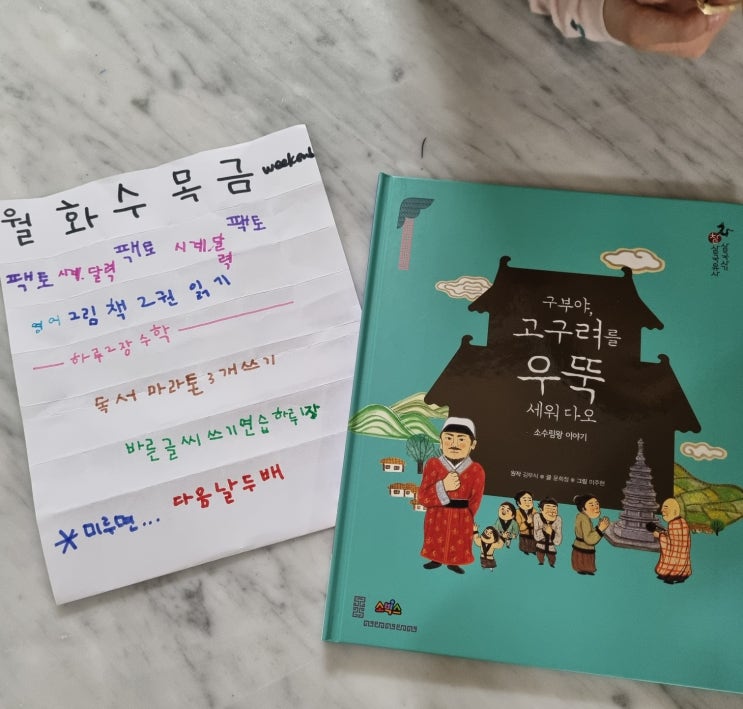 월 화 수 목 금 weekend
팩토 시계.달력 팩토 시계.달력 팩토
영어 그림 책 2권 읽기
하루2장 수학
독서 마라톤 3개쓰기
바른글씨 쓰기연습 하루1장
*미루면... 다음날 두배
구부야,
고구려를
우뚝
세워 다오
소수림왕 이야기
원작 김부식 글 문희정 그림 이주현
소빅스